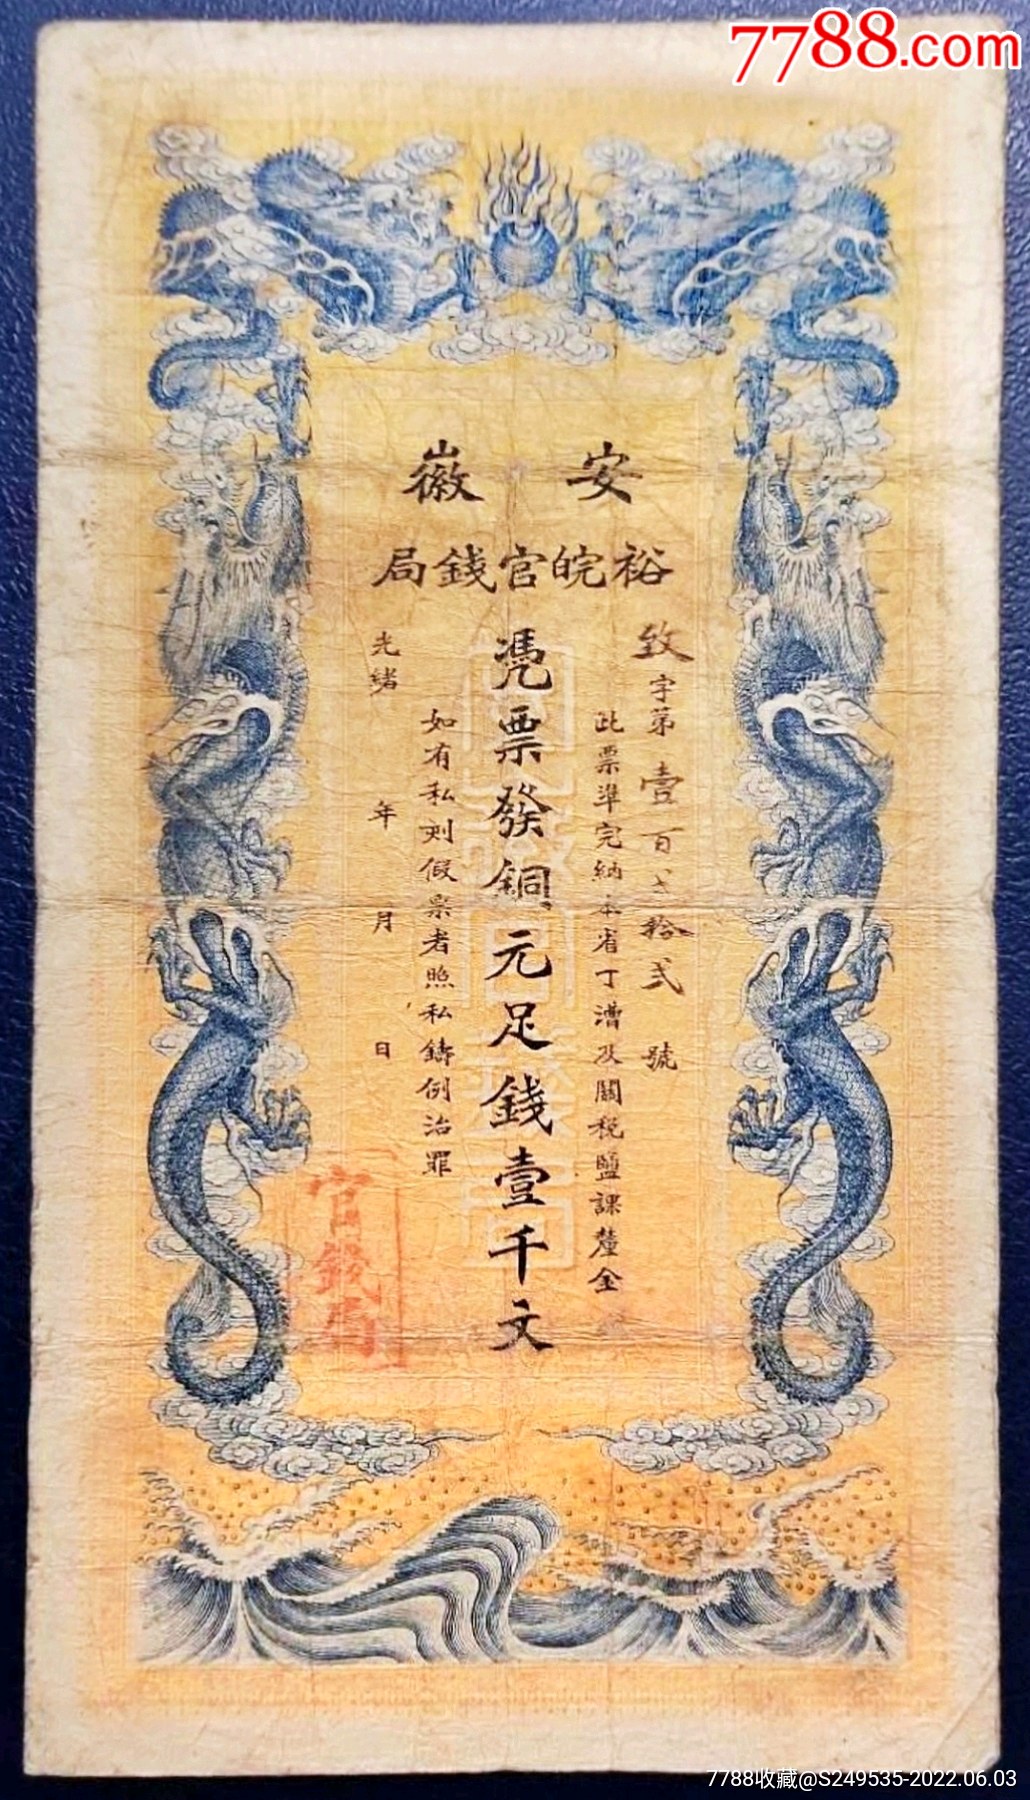 7788.com
安徽
裕皖官錢局
致字第壹百弍拾弍號
此票準完納本省丁漕及關稅鹽課釐金
憑票發銅元足錢壹千文
如有私刻假票者照私鑄例治罪
光緒 年 月 日
官錢局
7788收藏@S249535-2022.06.03